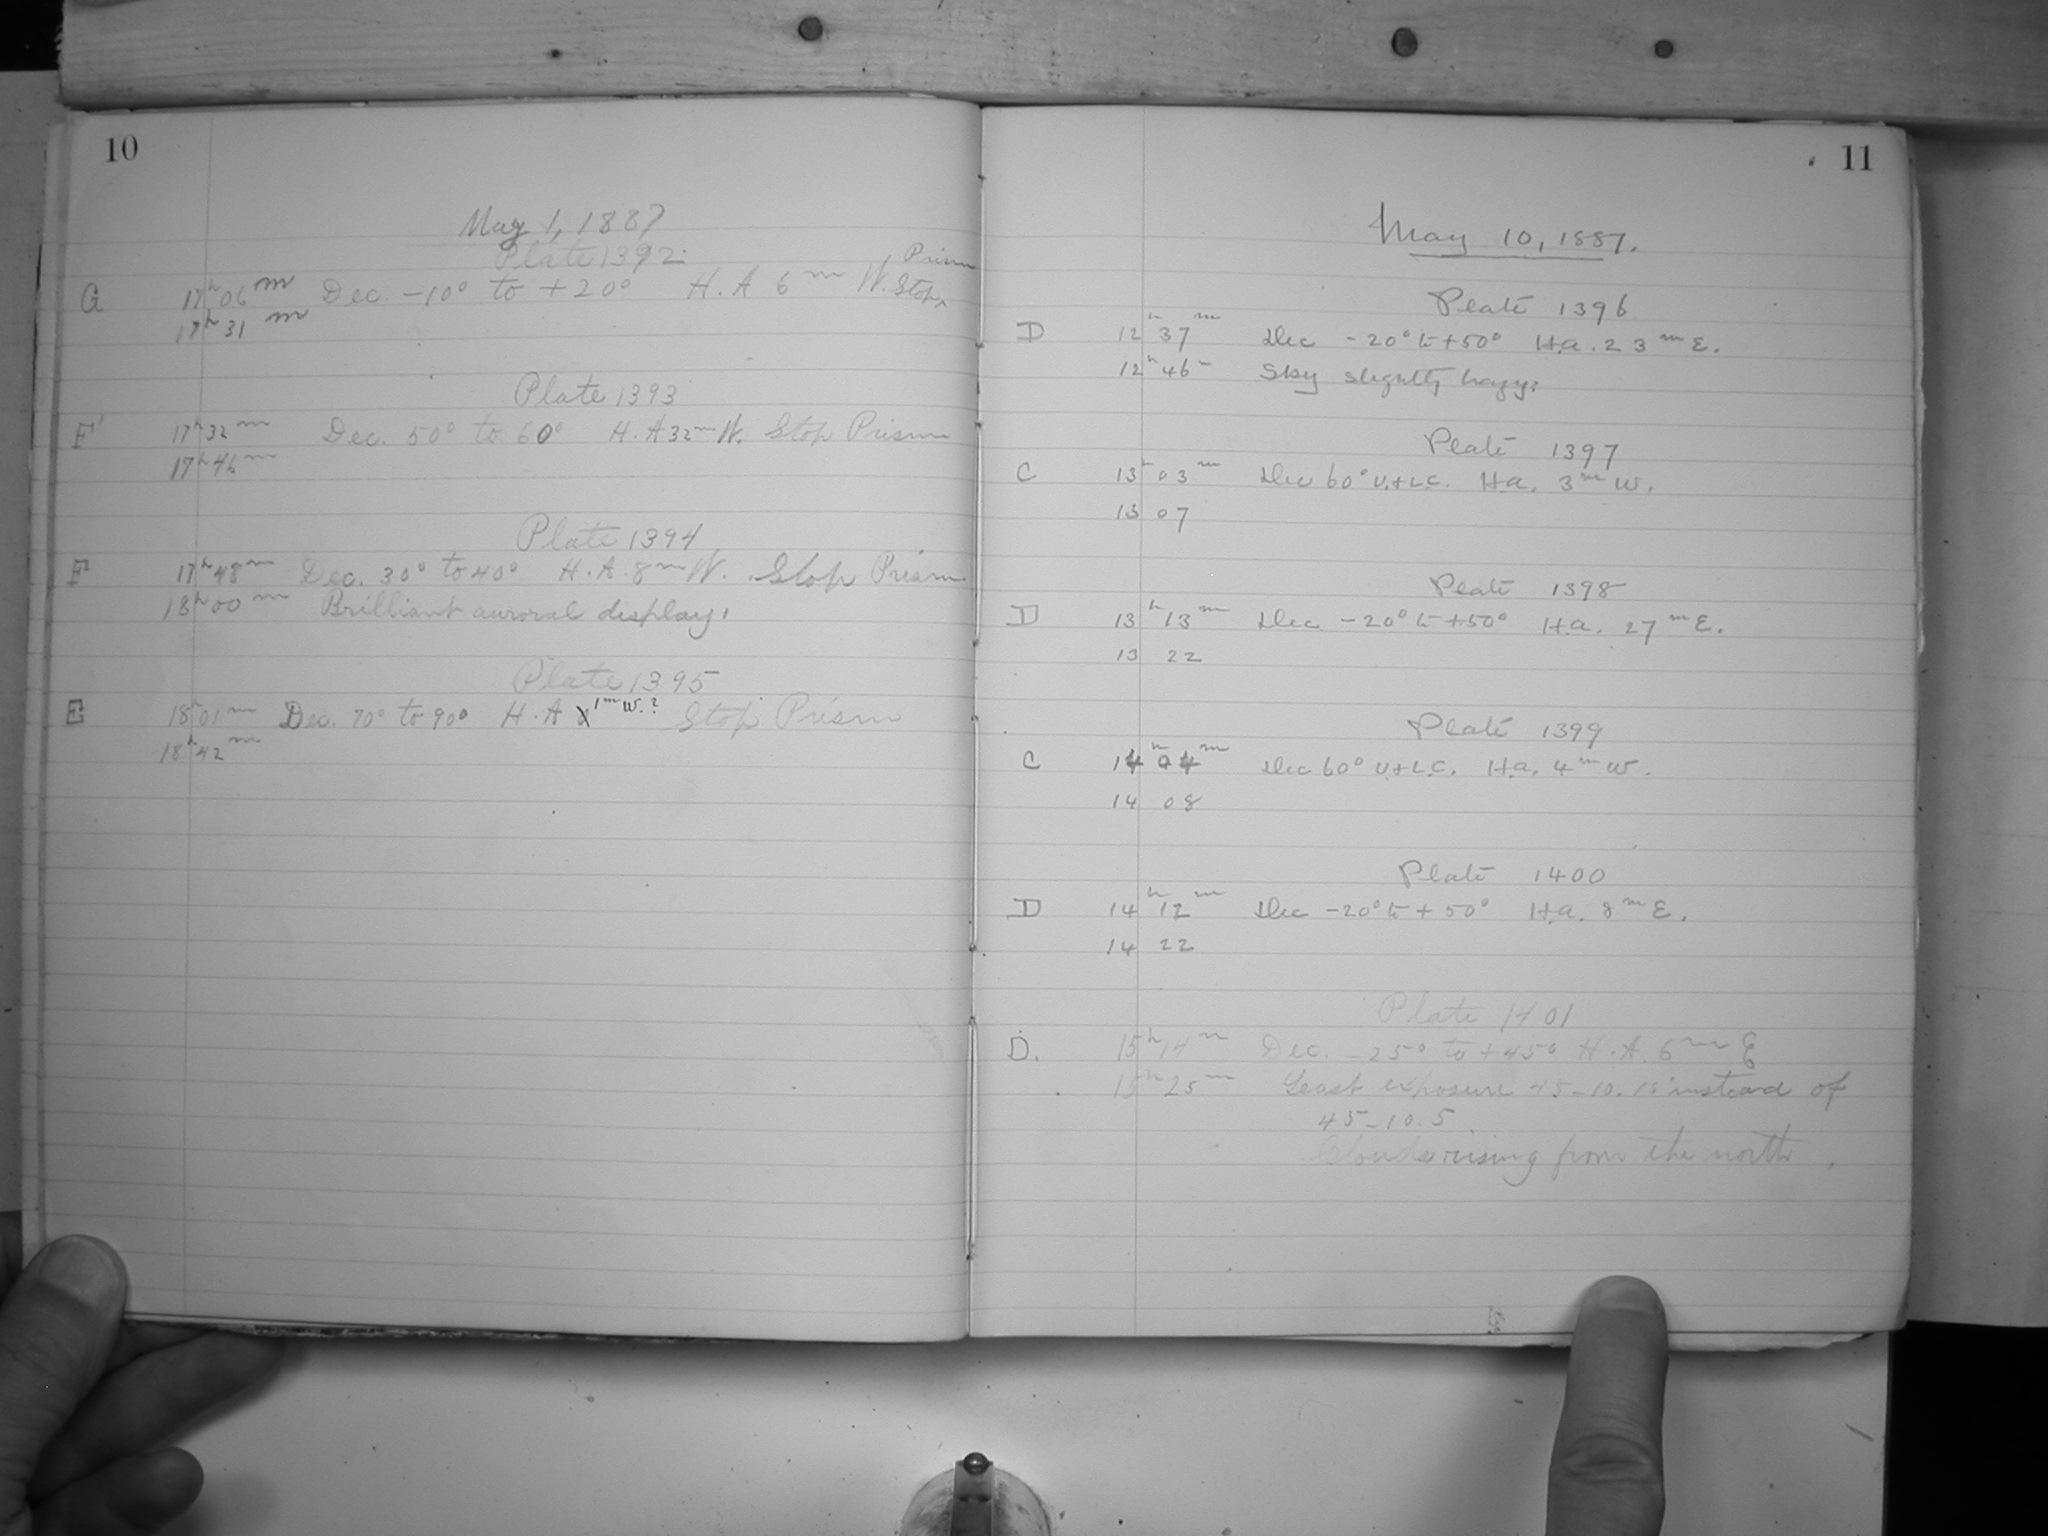 10
May 1, 1887
Plate 1392
Prism
G 17h 06m Dec. -10° to +20° H.A 6m W. Stop ^
17h 31m
Plate 1393
F' 17h 32m Dec. 50° to 60° H.A 32m W. Stop Prism
17h 46m
Plate 1394
F 17h 48m Dec. 30° to 40° H.A. 8m W. Stop Prism
18h 00m Brilliant auroral display.
Plate 1395
E 18h 01m Dec. 70° to 90° H.A 1m W.? Stop Prism
18h 42m
11
May 10, 1887.
Plate 1396
D 12h 37m Dec -20° to +50° H.a. 23m E.
12h 46m Sky slightly hazy.
Plate 1397
C 13h 03m Dec 60° U.+L.C. H.a. 3m W.
13 07
Plate 1398
D 13h 13m Dec -20° to +50° H.a. 27m E.
13 22
Plate 1399
C 14h 04m Dec 60° U.+L.C. H.a. 4m W.
14 08
Plate 1400
D 14h 12m Dec -20° to +50° H.a. 8m E.
14 22
Plate 1401
D. 15h 14m Dec. -25° to +45° H.A. 6m E
15h 25m Least exposure 45-10. instead of
45-10.5
Clouds rising from the north.